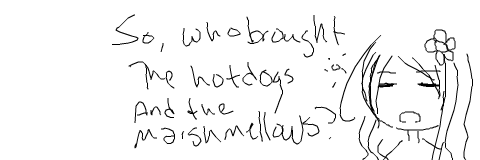 So, who brought
The hotdogs
And the
marshmellows?